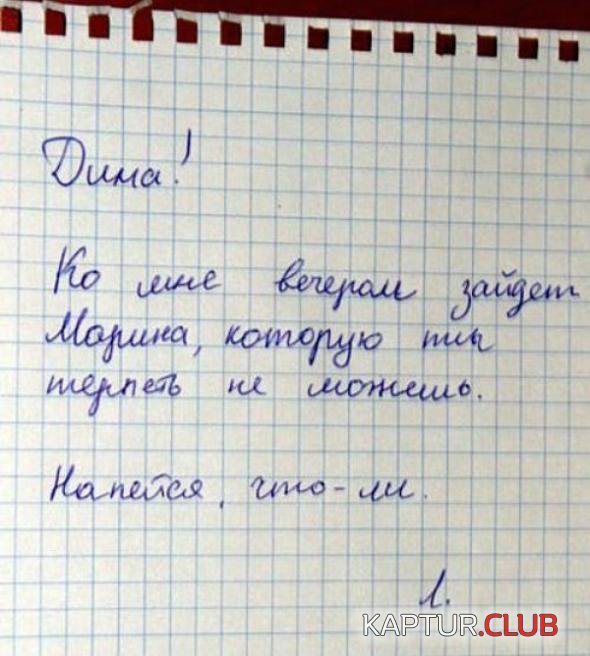 Дима!
Ко мне вечером зайдет
Марина, которую ты
терпеть не можешь.
Напейся, что-ли.
Л.
KAPTUR.CLUB